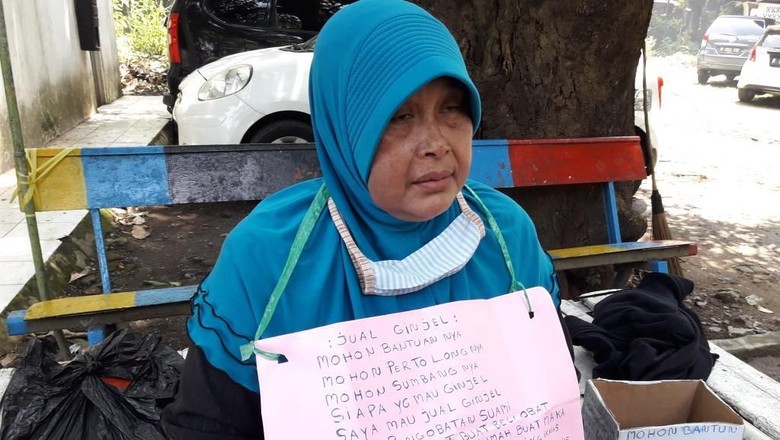 : JUAL GINJEL :
MOHON BANTUAN NYA
MOHON PERTOLONG NYA
MOHON SUMBANG NYA
SIAPA YG MAU GINJEL
SAYA MAU JUAL GINJEL
PENGOBATAN SUAMI
BUAT BELI OBAT
BUAT MAKA
MOHON BANTUN